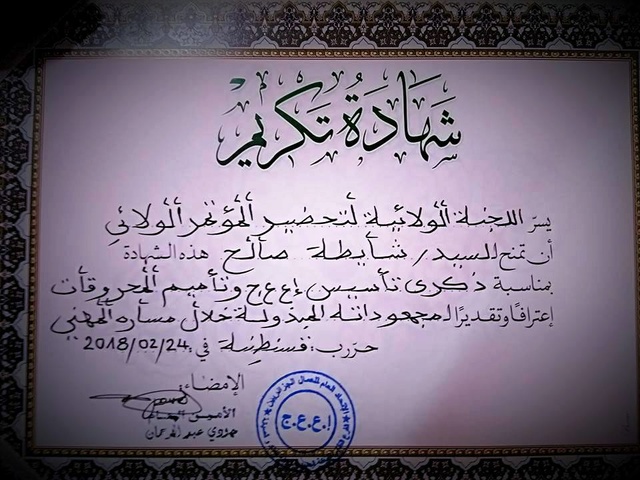 شَهَادَةُ تَكْرِيمٍ
يسرّ اللجنة الولائية لتحضير المؤتمر الولائي
أن تمنح السيد / شايطة صالح هذه الشهادة
بمناسبة ذكرى تأسيس إ ع ع ج وتأميم المحروقات
إعترافًا وتقديرًا لمجهوداته المبذولة خلال مساره المهني
حرّر ب: قسنطينة في: 2018/02/24
الإمضاء:
الأمين العام
عبد الرحمان
الإتحاد العام للعمال الجزائريين
إ.ع.ع.ج